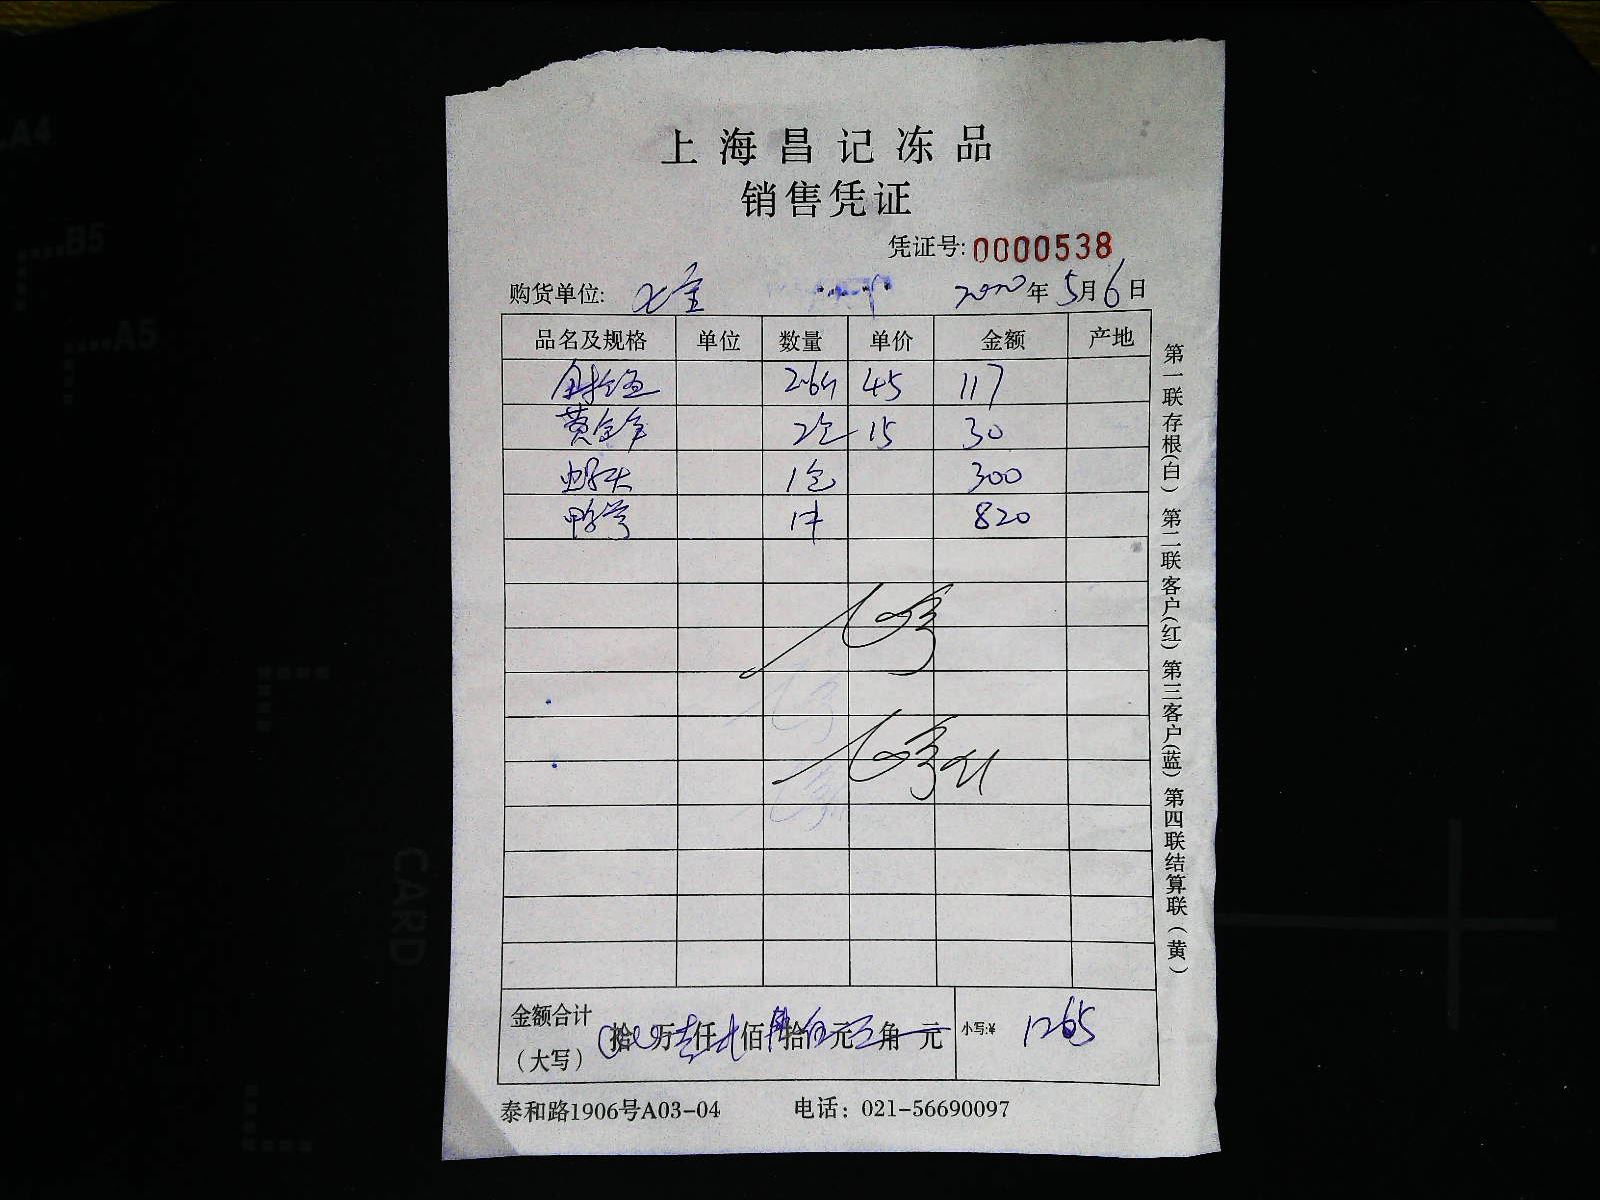 上海昌记冻品
销售凭证
凭证号: 0000538
购货单位: 七宝 2020年5月6日
品名及规格 单位 数量 单价 金额 产地
2.6斤 45 117
黄金羊 2包 15 30
虾头 1包 300
鸭胗 1件 820
金额合计 拾 万 仟 佰 拾 元 角 元 小写:¥ 1265
(大写)
泰和路1906号A03-04 电话: 021-56690097
第一联存根(白) 第二联客户(红) 第三客户(蓝) 第四联结算联(黄)
A4
B5
A5
CARD